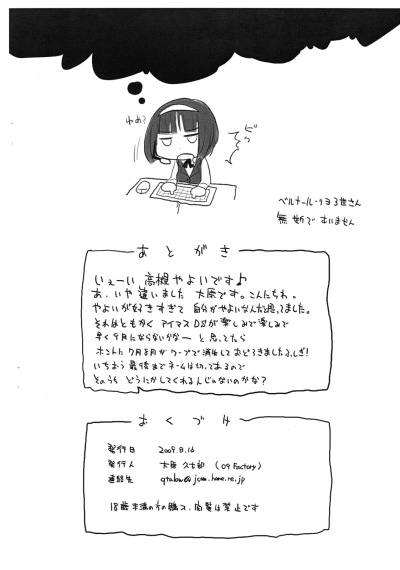 わぁ?
ビクッ
ベルナール・リヨ3世さん
無断ですいません
あとがき
いぇーい 高槻やよいです♪
あ、いや違いました 大原です。こんにちわ。
やよいが好きすぎて 自分がやよいなんだと思ってました。
それはともかく アイマスDSが楽しみで楽しみで
早く9月にならないかなー と 思ってたら
ホントに 7月8月が ワープで消失しておどろきましたふしぎ!
いちおう最後までネームは切ってあるので
そのうち どうにかしてくれるんじゃないのかな?
おくづけ
発行日 2009.8.16
発行人 大原 久太郎 (09Factory)
連絡先
18歳未満の方の購入、閲覧は禁止です